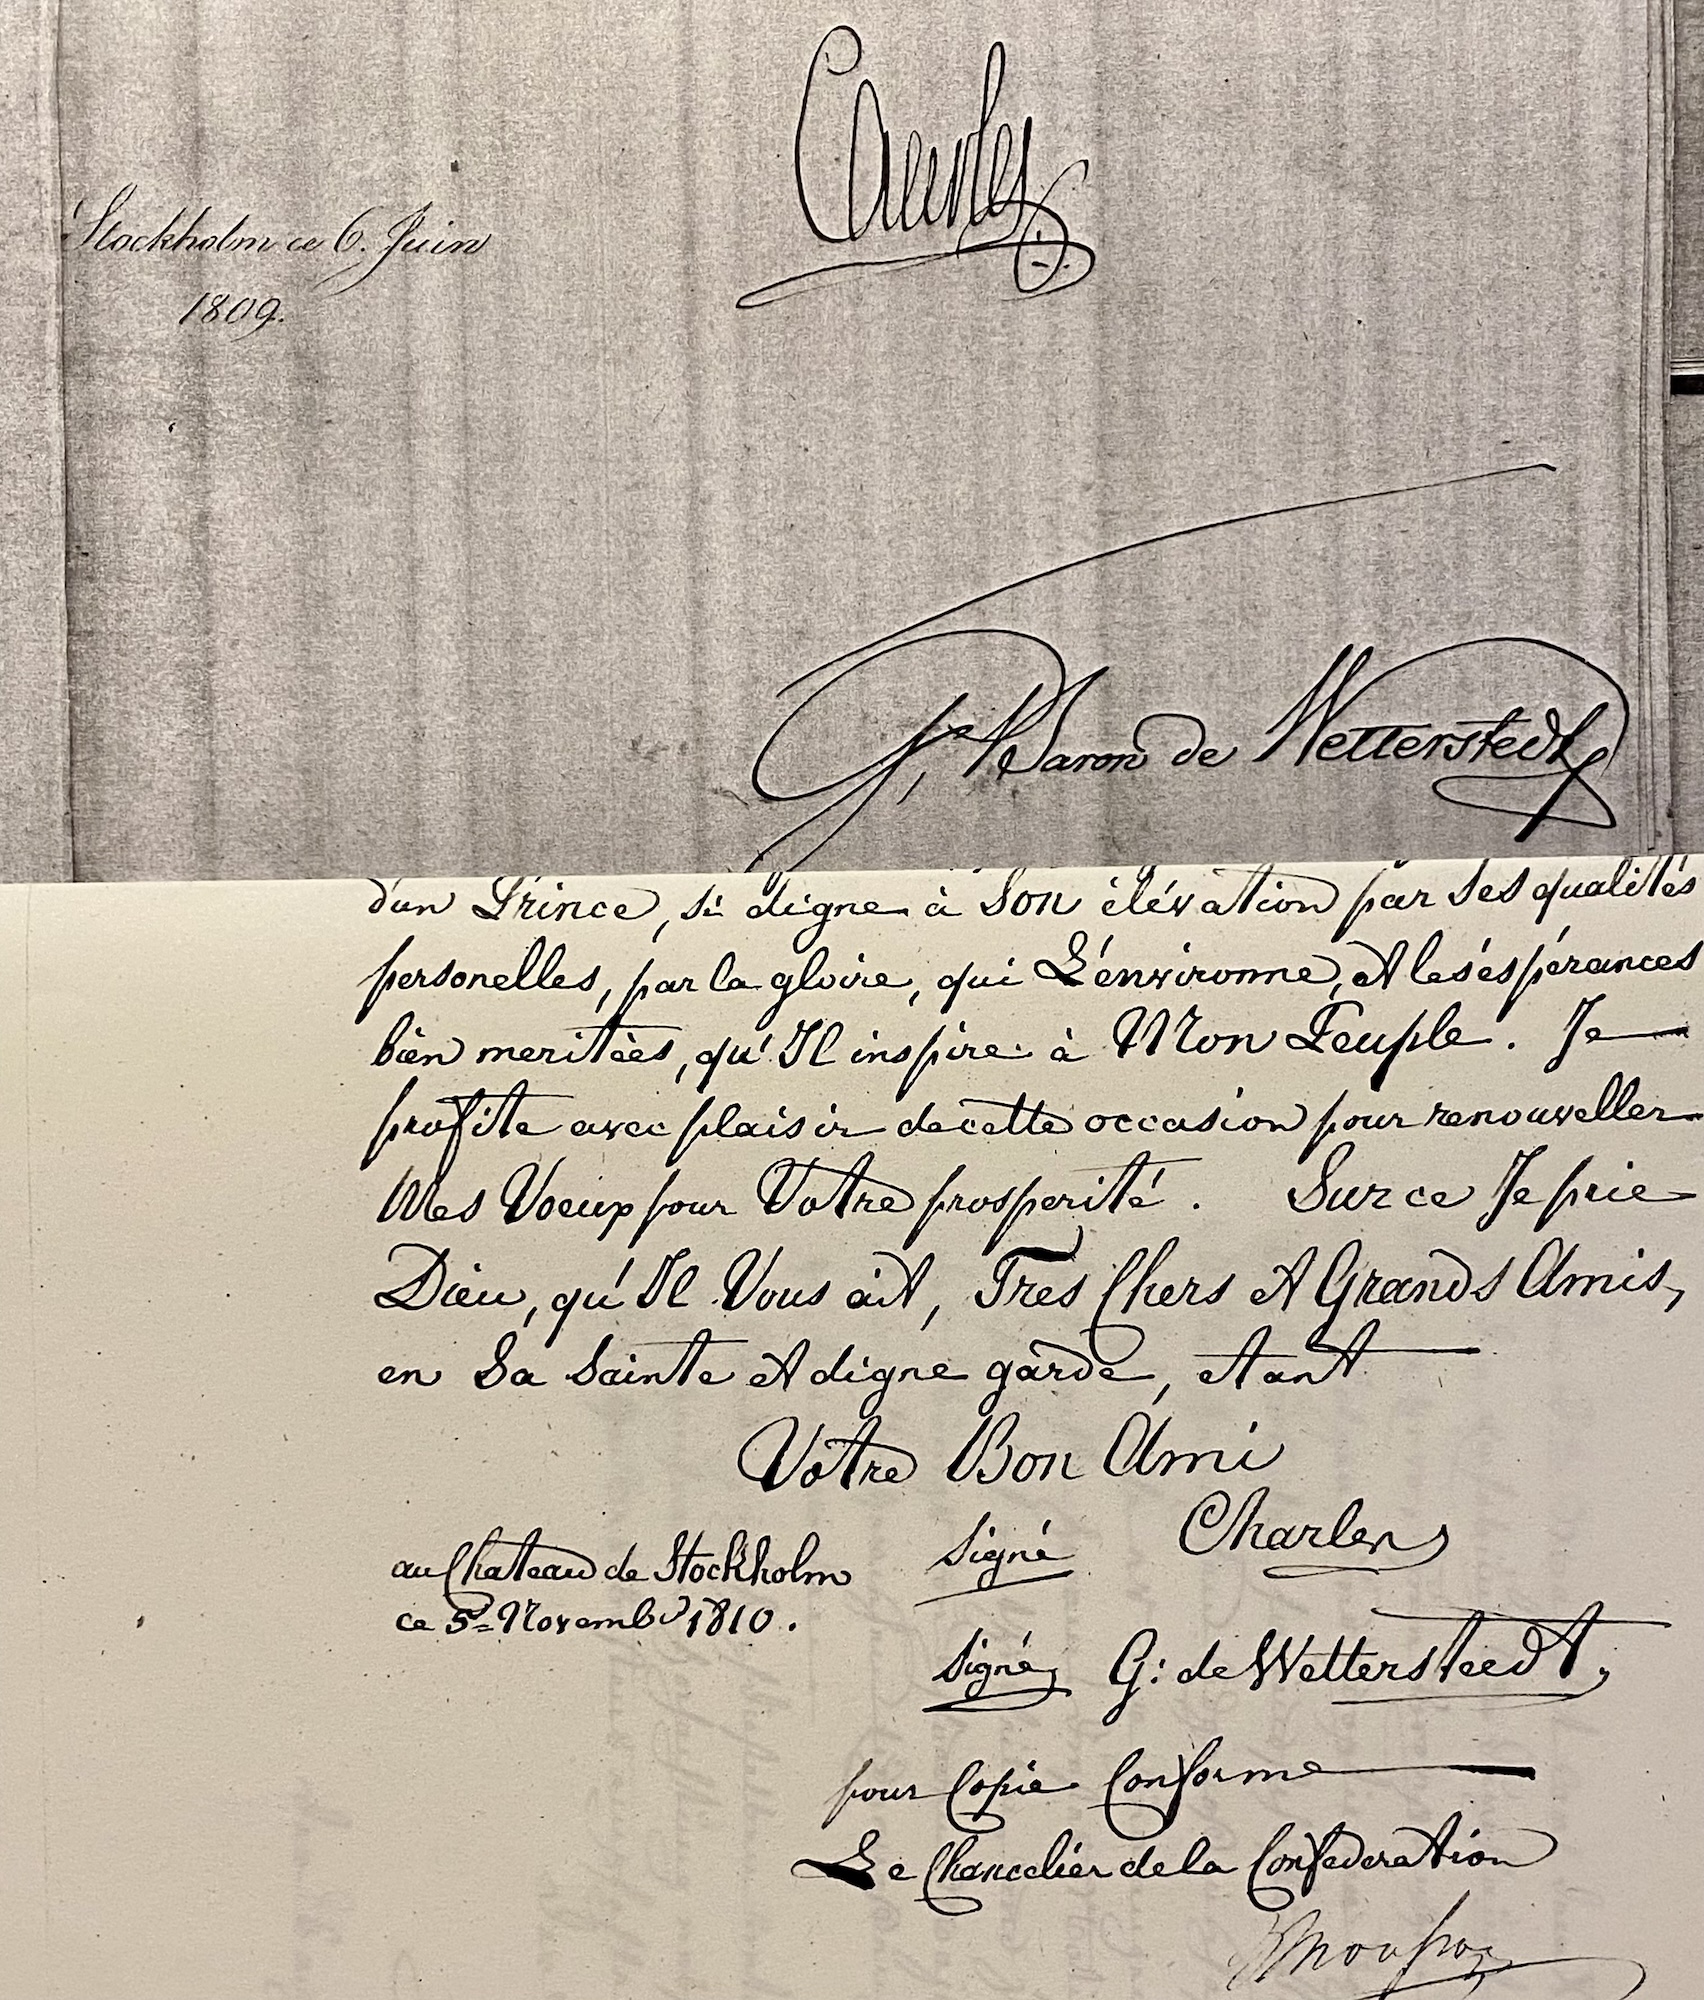 Charles
Stockholm ce 6. Juin
1809.
G. Baron de Wetterstedt
d'un Prince, si digne à Son élévation par Ses qualités
personelles, par la gloire, qui L'environne, et les éspérances
bien meritées, qu'Il inspire à Mon Peuple. Je
profite avec plaisir de cette occasion pour renouveller
Mes Voeux pour Votre prosperité. Sur ce Je prie
Dieu, qu'Il Vous ait, Tres Chers et Grands Amis,
en Sa Sainte et digne garde, etant
Votre Bon Ami
signé Charles
au Chateau de Stockholm
ce 5e Novembr 1810.
signé G: de Wetterstedt,
pour Copie Conforme
Le Chancelier de la Confederation
Mousson